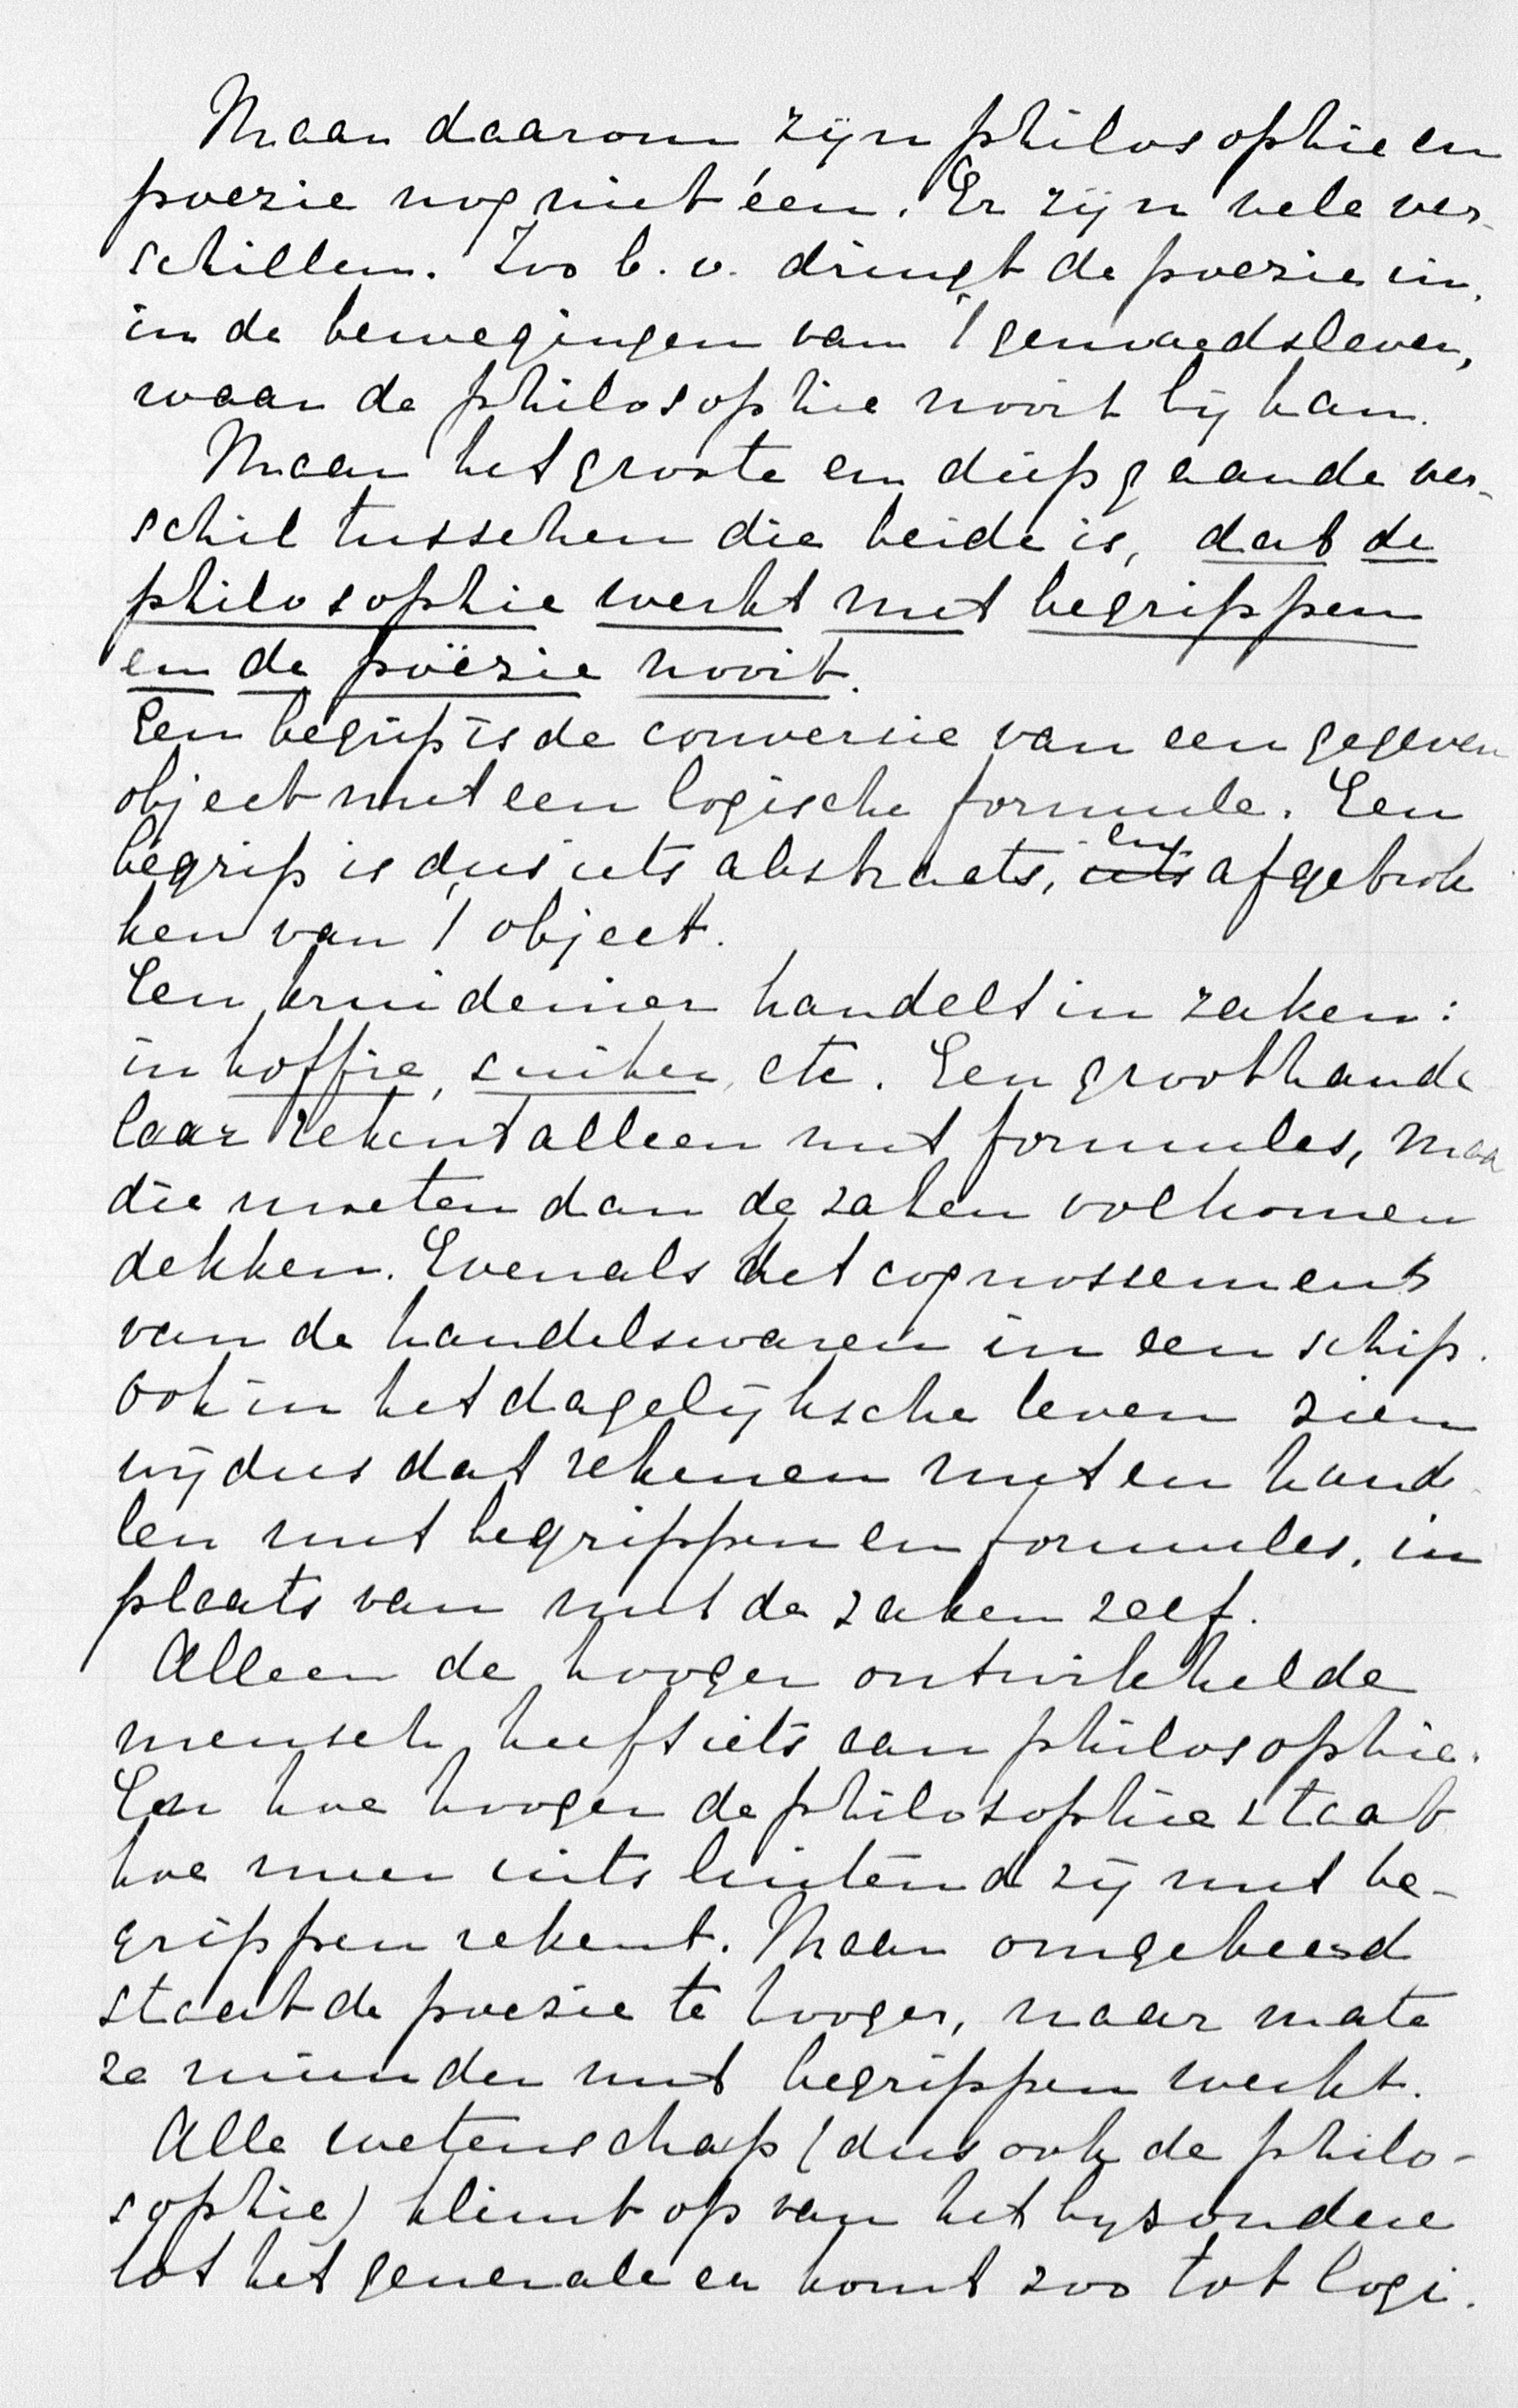 Maar daarom zijn philosophie en
poezie nog niet éen. Er zijn vele ver-
schillen. Zoo b.v. dringt de poezie in,
in de bewegingen van 't gemoedsleven,
waar de philosophie nooit bij kan.
Maar het groote en diepgaande ver-
schil tusschen die beide is, dat de
philosophie werkt met begrippen
en de poëzie nooit.
Een begrip is de conversie van een gegeven
object met een logische formule. Een
begrip is dus iets abstracts, en afgetrok
ken van 't object.
Een kruidenier handelt in zaken:
in koffie, suiker, etc. Een groothande
laar rekent alleen met formules, maa
die moeten dan de zaken volkomen
dekken. Evenals het cognossement
van de handelswaren in een schip.
Ook in het dagelijksche leven zien
wij dus dat rekenen met en hande
len met begrippen en formules, in
plaats van met de zaken zelf.
Alleen de hooger ontwikkelde
mensch heeft iets aan philosophie.
En hoe hooger de philosophie staat
hoe meer uitsluitend zij met be-
grippen rekent. Maar omgekeerd
staat de poezie te hooger, naar mate
ze minder met begrippen werkt.
Alle wetenschap (dus ook de philo-
sophie) klimt op van het byzondere
tot het generale en komt zoo tot logi.